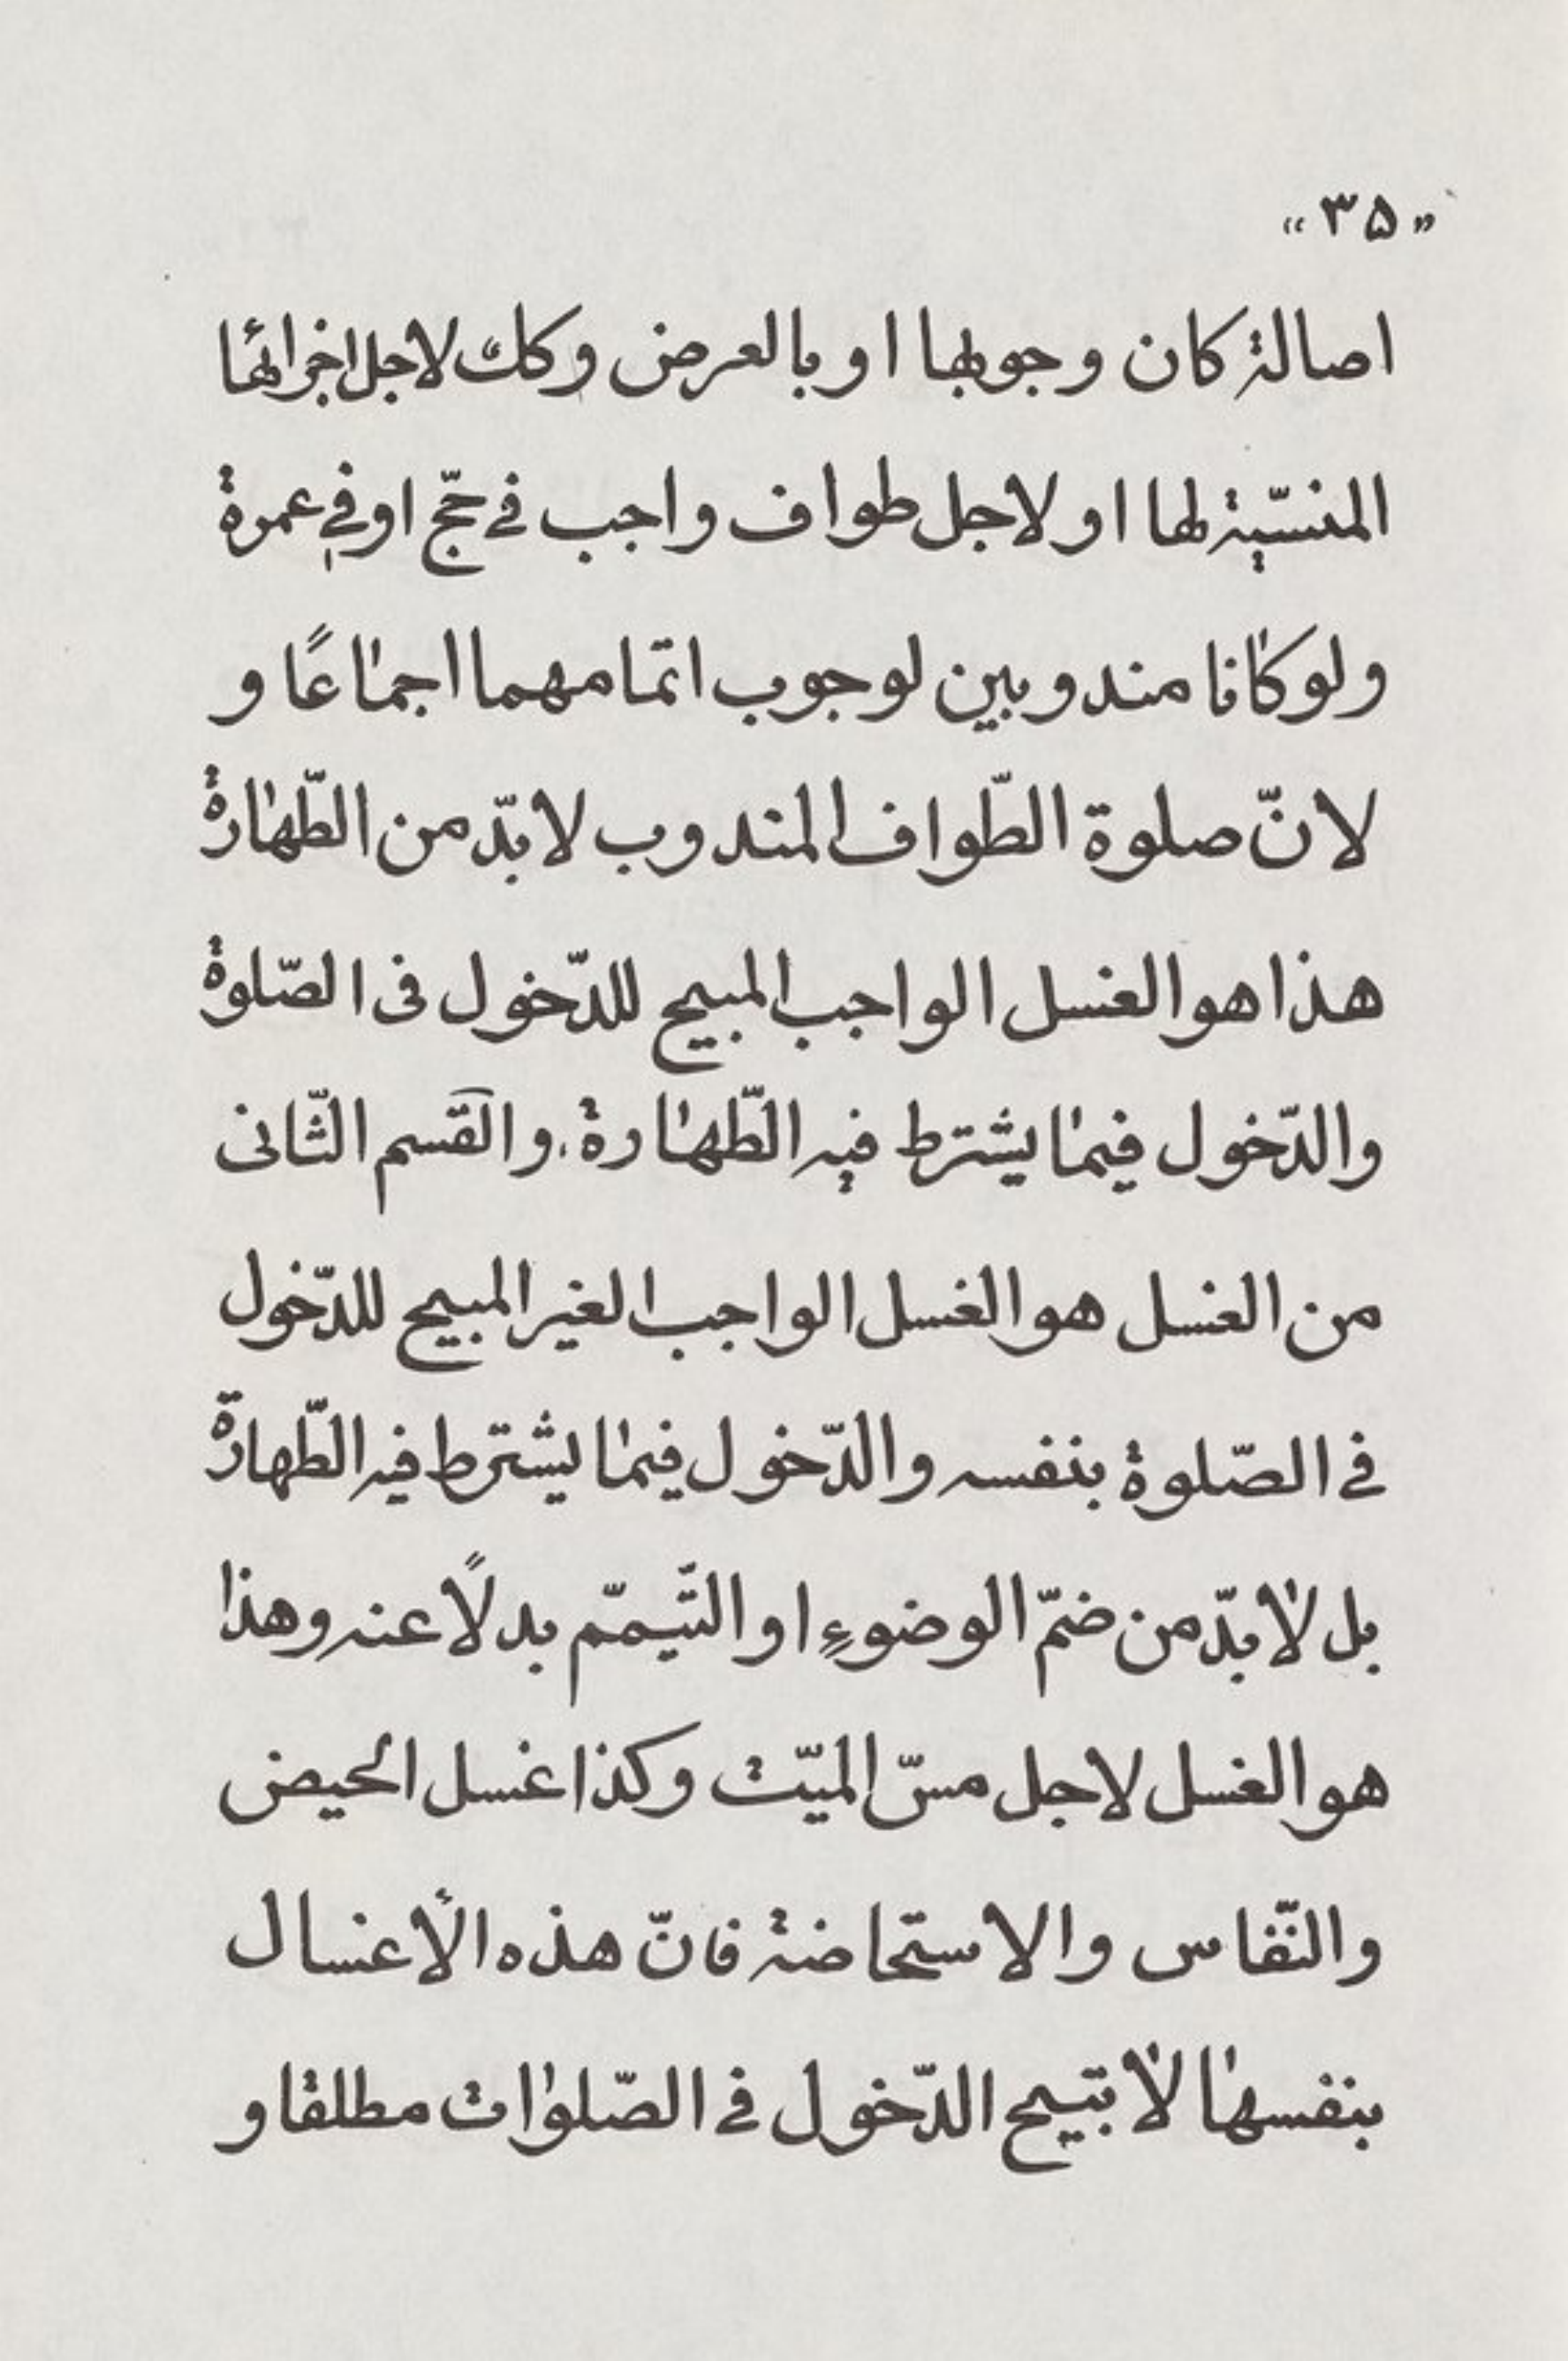 «۳۵»
اصالة كان وجوبها او بالعرض وكك لاجل اجزائها
المنسّية لها او لاجل طواف واجب فے حجّ او فے عمرة
ولو كانا مندوبين لوجوب اتمامهما اجماعًا و
لانّ صلوة الطّواف المندوب لا بدّ من الطّهارة
هذا هو الغسل الواجب المبيح للدّخول فى الصّلوة
والدّخول فيما يشترط فيه الطّهارة. والقسم الثّانى
من الغسل هو الغسل الواجب الغير المبيح للدّخول
فے الصّلوة بنفسه والدّخول فيما يشترط فيه الطّهارة
بل لا بدّ من ضمّ الوضوءِ او التّيمّم بدلًا عنه وهذا
هو الغسل لاجل مسّ الميّت وكذا غسل الحيض
والنّفاس والاستحاضة فانّ هذه الأغسال
بنفسها لا تبيح الدّخول فے الصّلوات مطلقا و